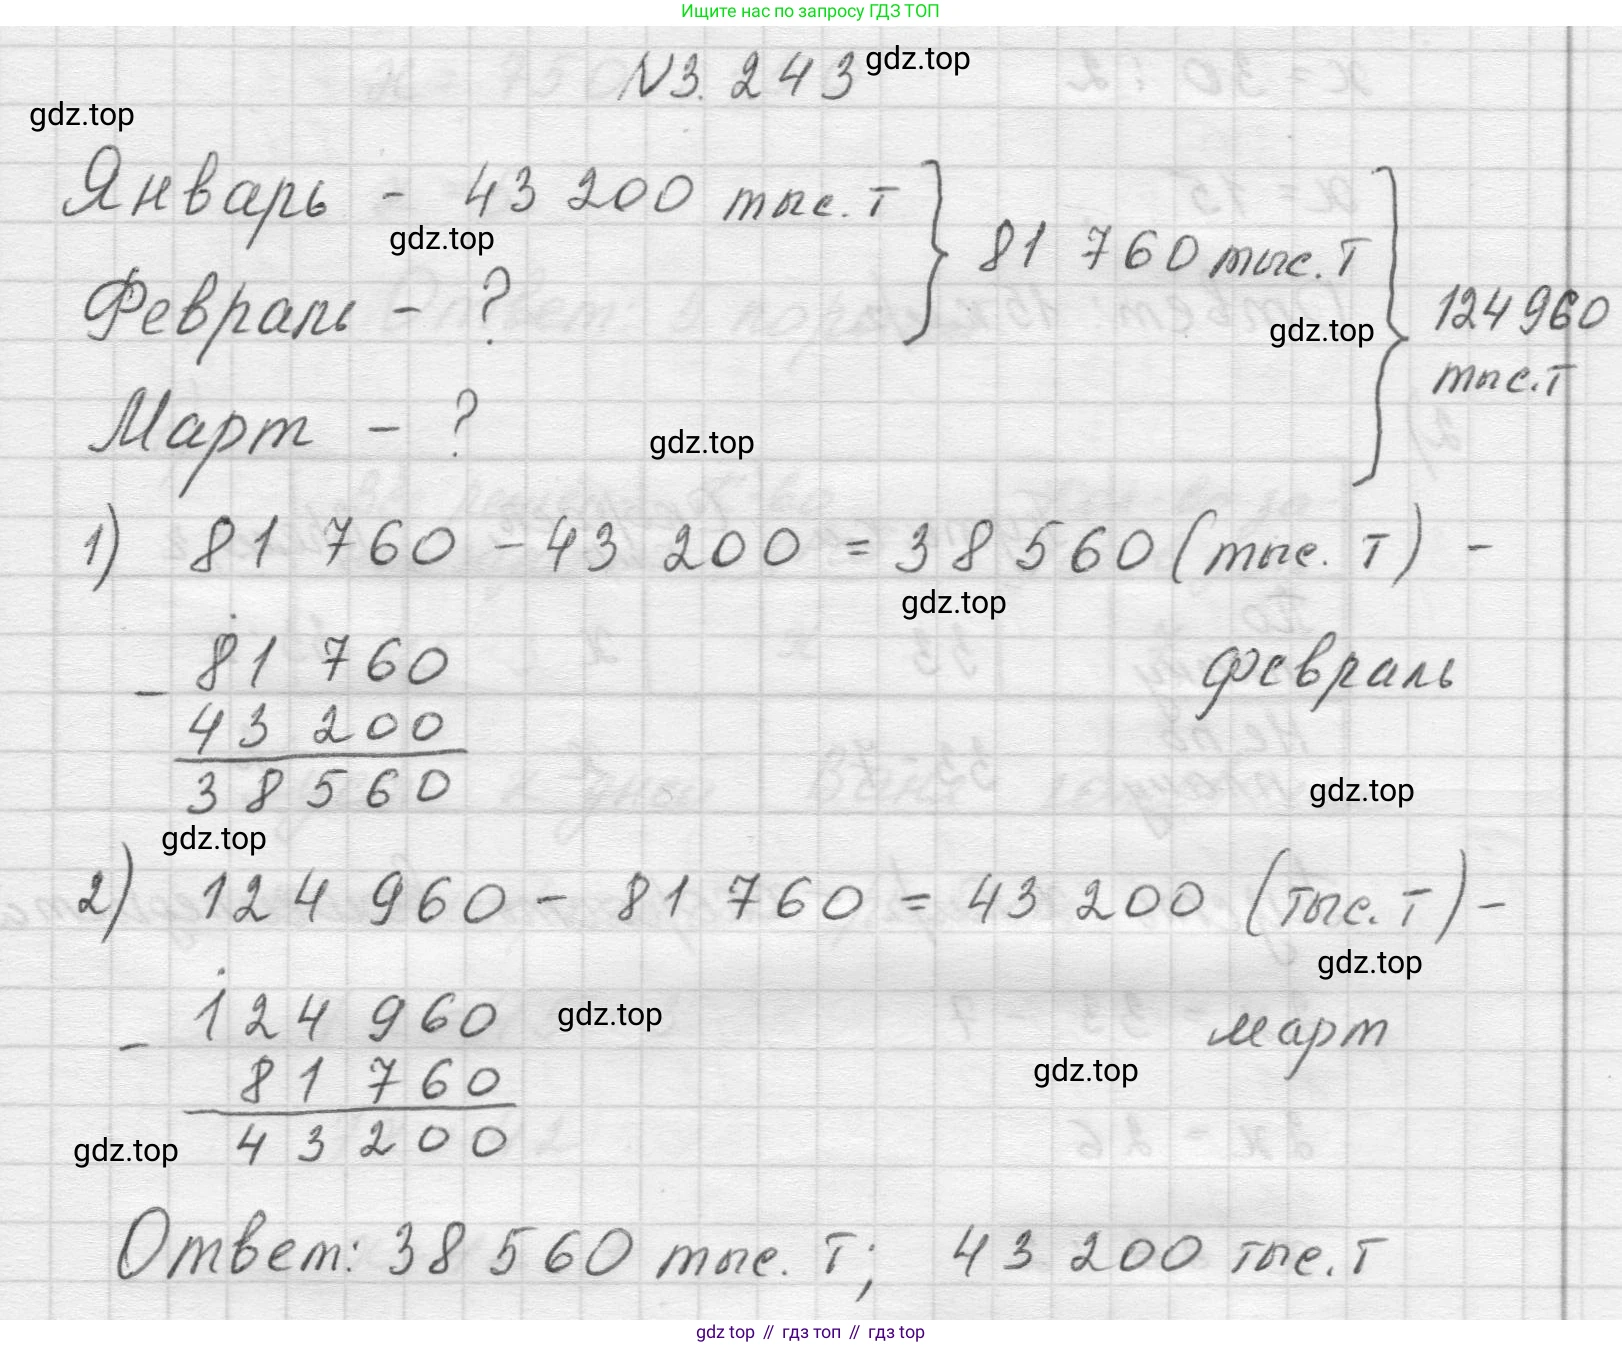 Ищите нас по запросу ГДЗ ТОП
N3. 243 gdz.top
gdz.top
Январь - 43 200 тыс. т
gdz.top
81 760 тыс. т
Февраль - ?
124 960
gdz.top
тыс. т
Март - ?
gdz.top
1) 81 760 - 43 200 = 38 560 (тыс. т) -
gdz.top
- 81 760
февраль
43 200
38 560
gdz.top
gdz.top
2) 124 960 - 81 760 = 43 200 (тыс. т) -
gdz.top
- 124 960
gdz.top
март
81 760
gdz.top
43 200
gdz.top
Ответ: 38 560 тыс. т; 43 200 тыс. т
gdz top // гдз топ // гдз top